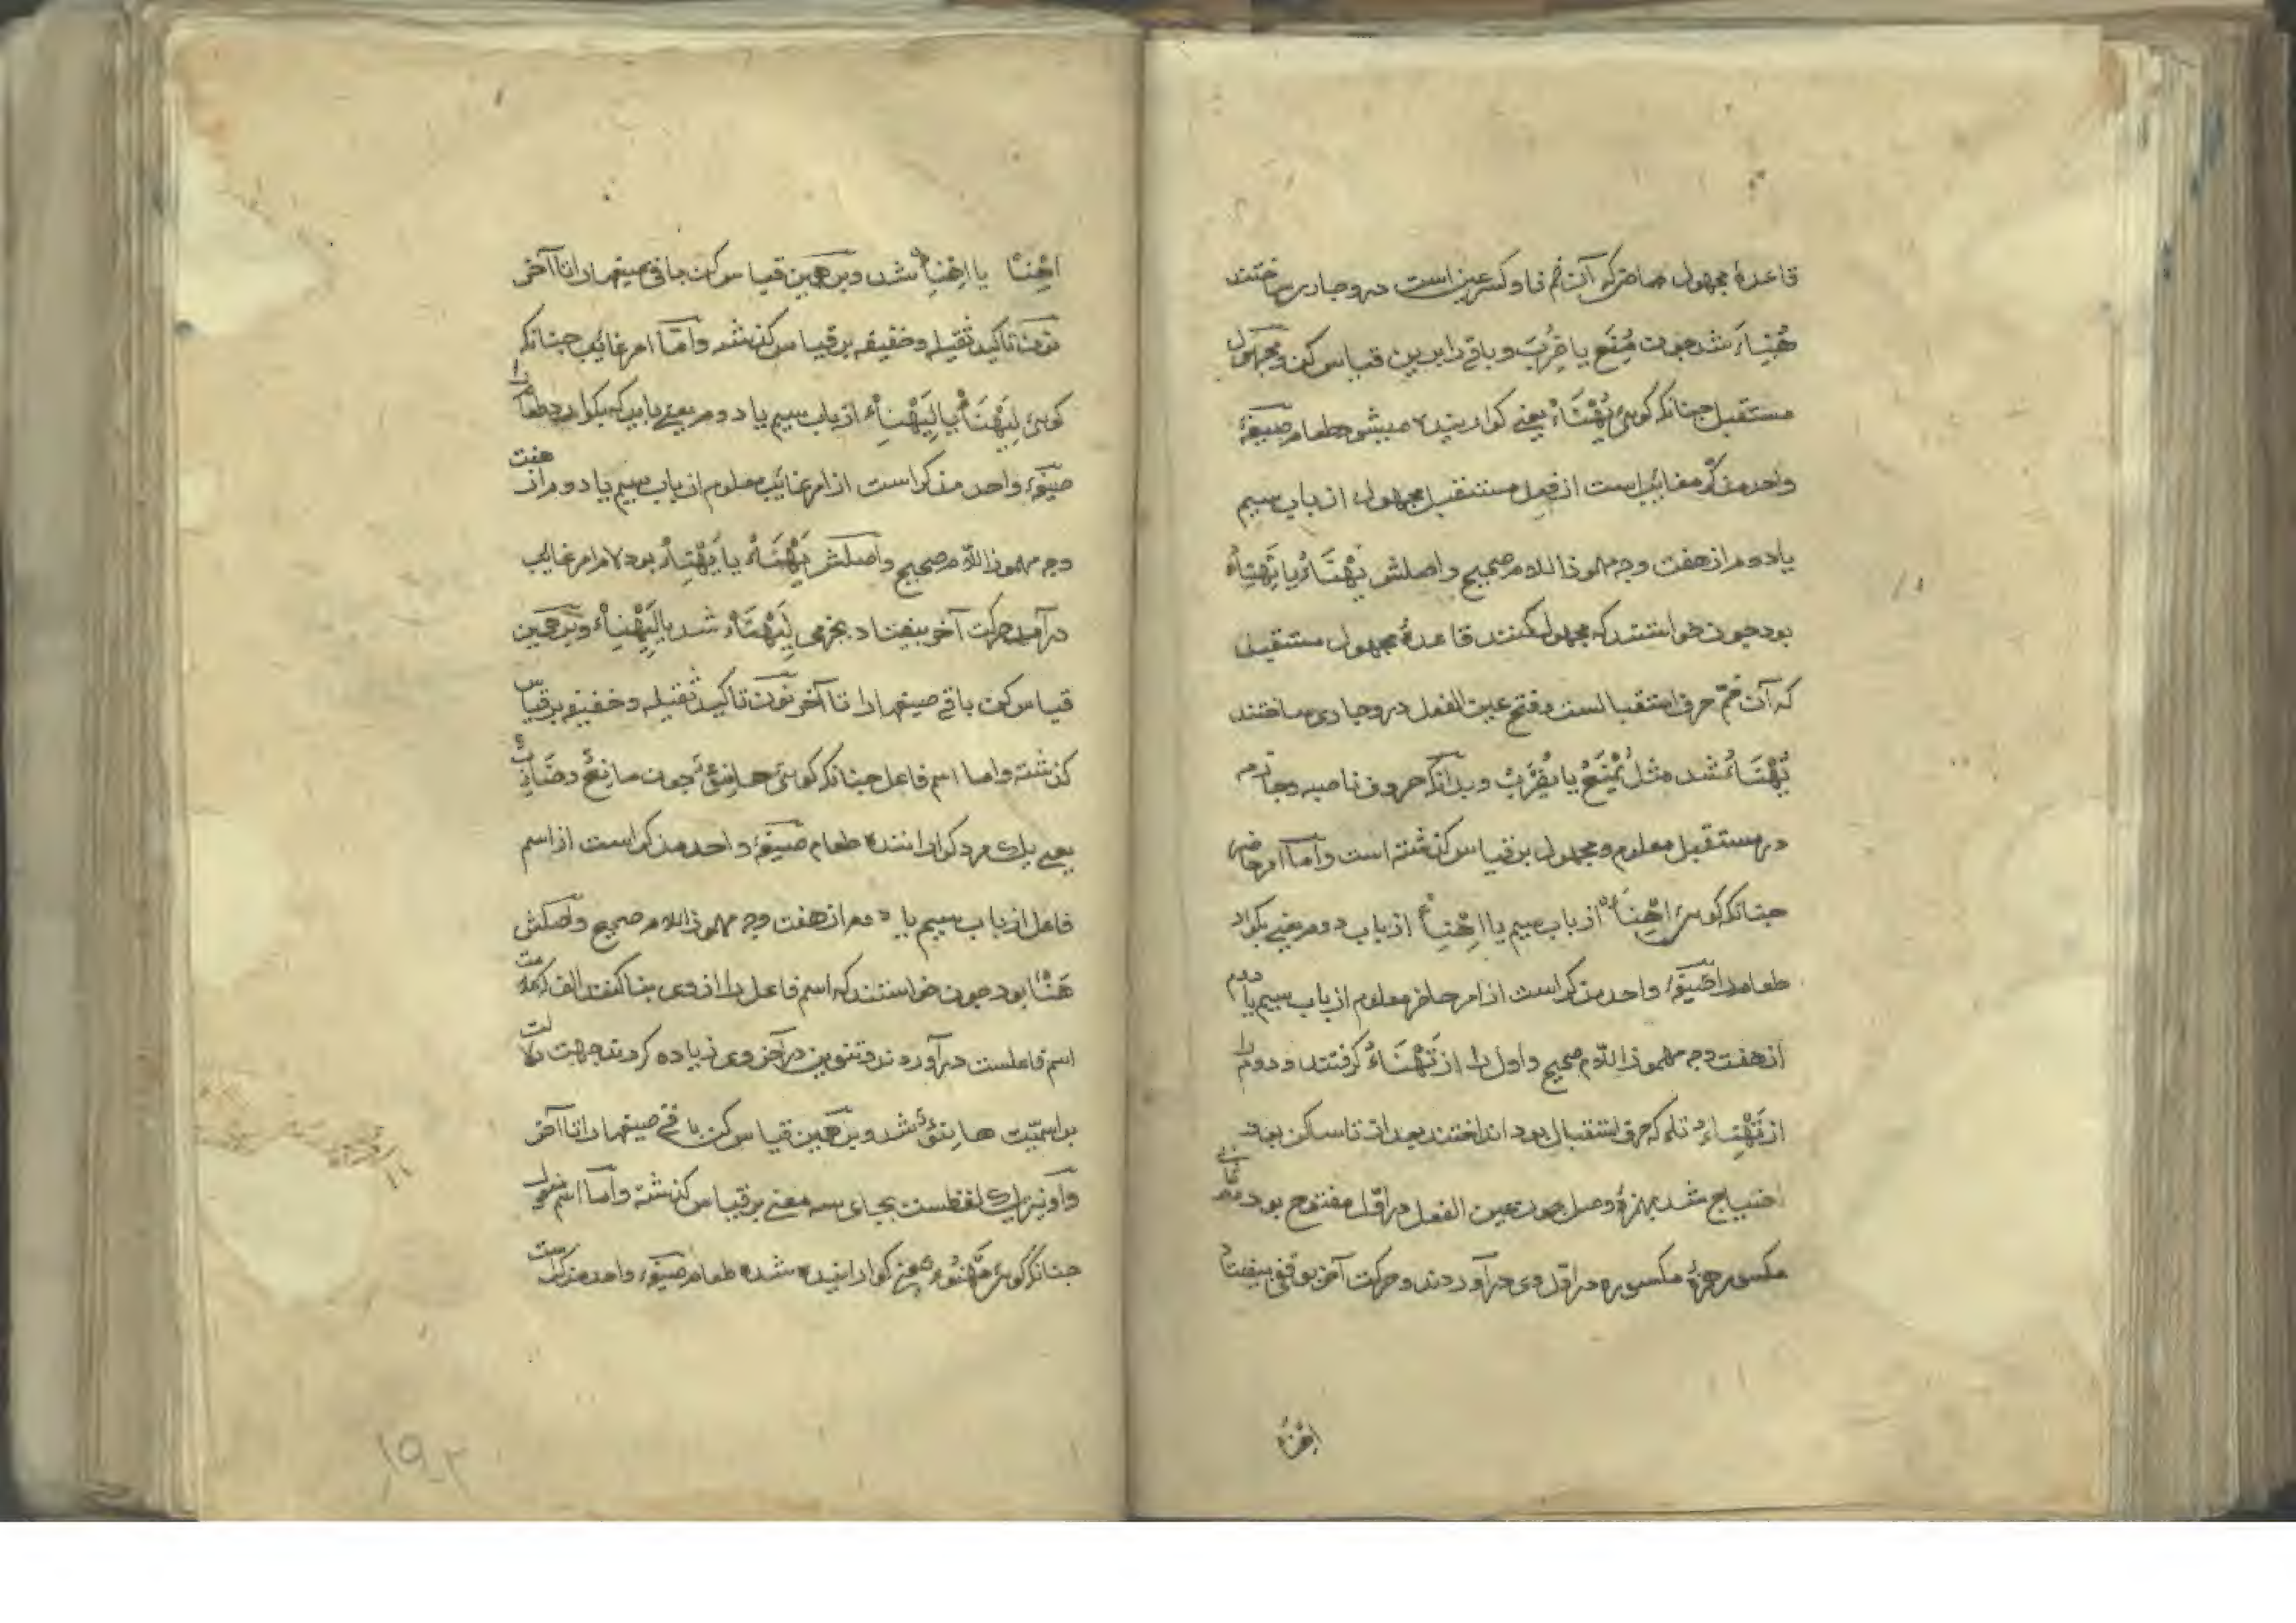 قاعدهٔ مجهول ماضی که آن ضم فا و کسر عین است درو جاری ساختند
هُنِئَ شد چون مُنِعَ یا ضُرِبَ و باقی را برین قیاس کن و مجهول
مستقبل چنانکه کوئی یُهْنَاءُ یعنی کوارنیده میشود طعام صیغهٔ
واحد مذکر مغایب است از فعل مستقبل مجهول از باب سیم
یا دوم از هفت وجه مهموز اللام صحیح و اصلش یَهْنَاءُ یا یَهْنِاءُ
بود چون خواستند که مجهول کنند قاعدهٔ مجهول مستقبل
که آن ضم حرف استقبالست و فتح عین الفعل درو جاری ساختند
یُهْنَاءُ شد مثل یُمْنَعُ یا یُضْرَبُ و بدانکه حروف ناصبه و جازم
در مستقبل معلوم و مجهول بر قیاس کذشته است و اما امر حاضر
چنانکه کوئی اِهْنَاءْ از باب سیم یا اِهْنِاءْ از باب دوم یعنی بکوار
طعام را صیغهٔ واحد مذکر است از امر حاضر معلوم از باب سیم یا دوم
از هفت وجه مهموز اللام صحیح و اول را از تَهْنَاءُ کرفتند و دوم را
از تَهْنِاءُ تا که حرف استقبال بود انداختند بعد از تا ساکن بود
احتیاج شد بهمزهٔ وصل چون عین الفعل در اول مفتوح بود و در ثانی
مکسور همزهٔ مکسوره در اول وی درآوردند و حرکت آخر بوقفی بیفتاد
اِهْنَاءْ
اِهْنَاْ یا اِهْنِاْ شد و برهمین قیاس کن باقی صیغها را تا آخر
نون تاکید ثقیله و خفیفه بر قیاس کذشته و اما امر غائب چنانکه
کوئی لِیَهْنَاءْ یا لِیَهْنِاءْ از باب سیم یا دوم یعنی باید که بکوارد طعام را
صیغهٔ واحد مذکر است از امر غائب معلوم از باب سیم یا دوم از هفت
وجه مهموز اللام صحیح و اصلش یَهْنَاءُ یا یَهْنِاءُ بود لام امر غایب
درآمد حرکت آخر بیفتاد بجزمی لِیَهْنَاءْ شد یا لِیَهْنِاءْ و برهمین
قیاس کن باقی صیغها را تا آخر نون تاکید ثقیله و خفیفه بر قیاس
کذشته و اما اسم فاعل چنانکه کوئی هانِئٌ چون مانِعٌ و ضارِبٌ
یعنی یک مرد کواراننده طعام صیغهٔ واحد مذکر است از اسم
فاعل از باب سیم یا دوم از هفت وجه مهموز اللام صحیح و اصلش
هَنَأَ بود چون خواستند که اسم فاعل را از وی بنا کنند الف که علامت
اسم فاعلست درآوردند و تنوین در آخر وی زیاده کردند جهت دلالت
بر اسمیت هانِئٌ شد و برهمین قیاس کن باقی صیغها را تا آخر
و او نیز یک لفظست بجای سه معنی بر قیاس کذشته و اما اسم مفعول
چنانکه کوئی مَهْنُوءٌ یعنی کوارانیده شده طعام صیغهٔ واحد مذکر است
۱۹۲